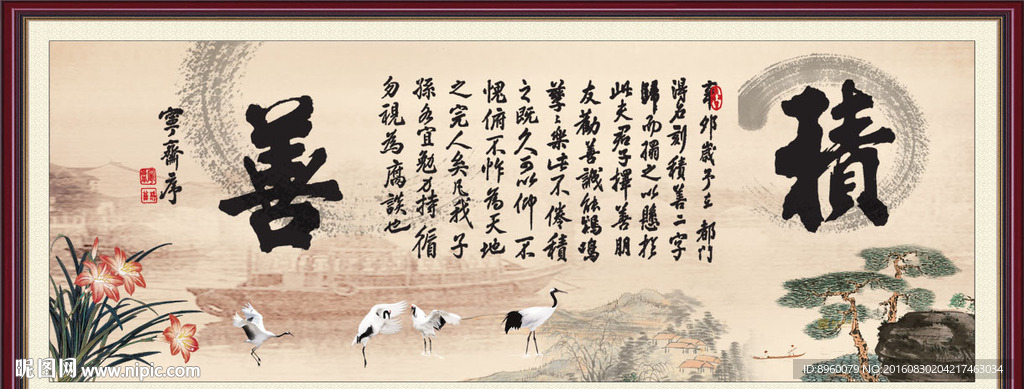 積
辛卯歲予在都門
得名刻積善二字
歸而搨之以懸於
此夫君子擇善朋
友勸善誠能鷄鳴
孳々樂此不倦積
之既久可以仰不
愧俯不怍為天地
之完人矣凡我子
孫各宜勉力持循
勿視為腐談也
善
寧齋序
昵图网 www.nipic.com
ID:8960079 NO:20160830204217463034